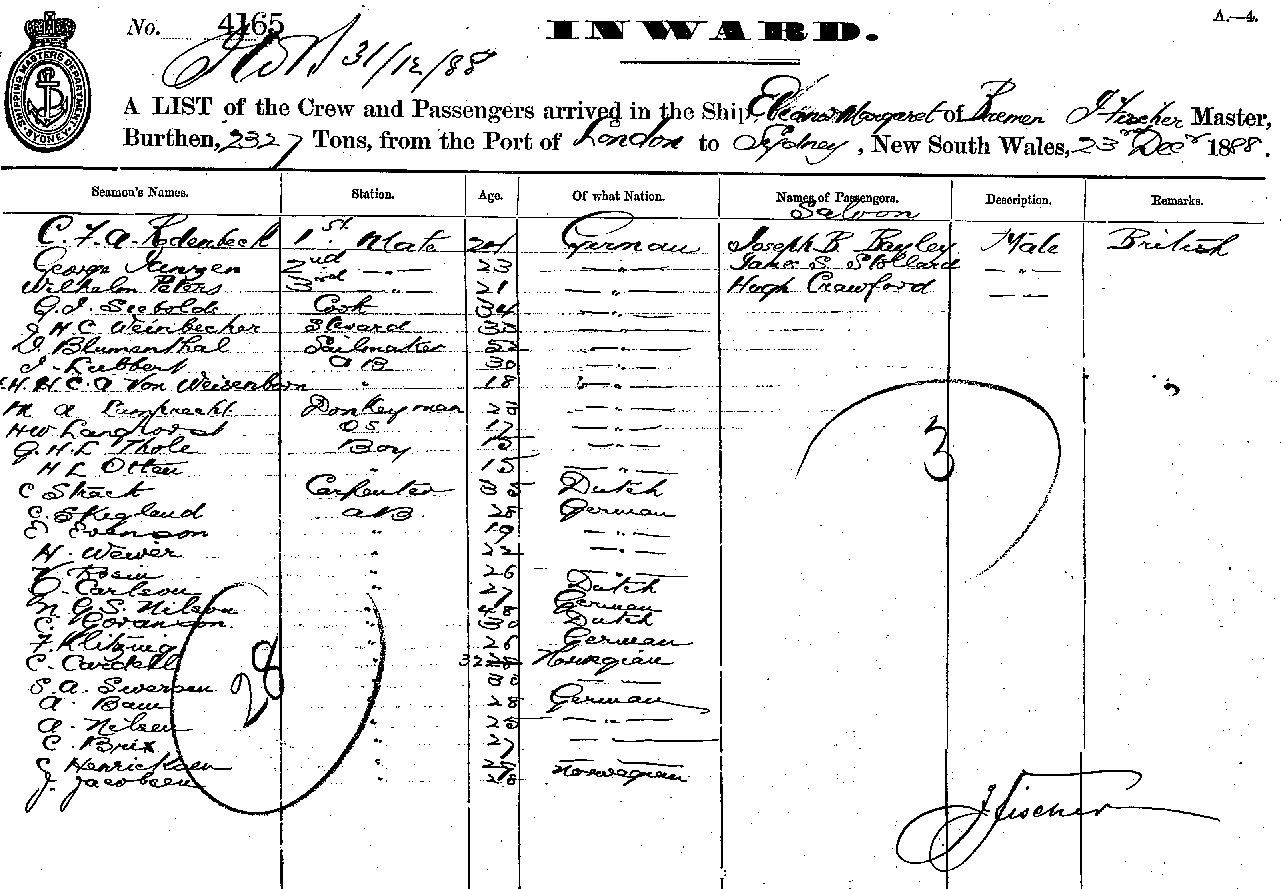 No. 4165 INWARD. A.—4.
31/12/88
SHIPPING MASTERS DEPARTMENT SYDNEY
A LIST of the Crew and Passengers arrived in the Ship Eleanor Margaret of Bremen J Fischer Master,
Burthen, 2327 Tons, from the Port of London to Sydney, New South Wales, 23rd Decr 1888.
Seamen's Names. Station. Age. Of what Nation. Names of Passengers. Description. Remarks.
Saloon
C. F. A. Rodenbeck 1st. Mate 24 German Joseph B. Bayley Male British
George Janzen 2nd —"— 23 —"— James S. Stollard —"—
Wilhelm Peters 3rd —"— 21 —"— Hugh Crawford —"—
G. J. Seebolds Cook 34 —"—
J H C Weinbecher Steward —"—
D. Blumenthal Sailmaker 52 —"—
J. Lubbert AB 30 —"—
H. H. C. A Von Weisenborn " 18 —"—
M A Lamprecht Donkeyman —"—
HW Langhorst OS 17 —"—
G. H. L Thole Boy 15 —"—
H L Otten " 15 —"—
C Strack Carpenter Dutch
C. Skeglund AB 28 German
E Evenson " 19 —"—
H. Wewer " 22 —"—
Rosin " 26 —"—
O. Carlson " 27 Dutch
N. G. S. Nilson " German
C. Goranson " Dutch
F. Klitzing " 26 German
C. Carddell " 32 Norwegian
S. A. Swersen "
A. Bam " 28 German
A. Nilsen " —"—
C. Brix " 27
C Henricksen " 27
J. Jacobsen " Norwegian
28
3
J Fischer